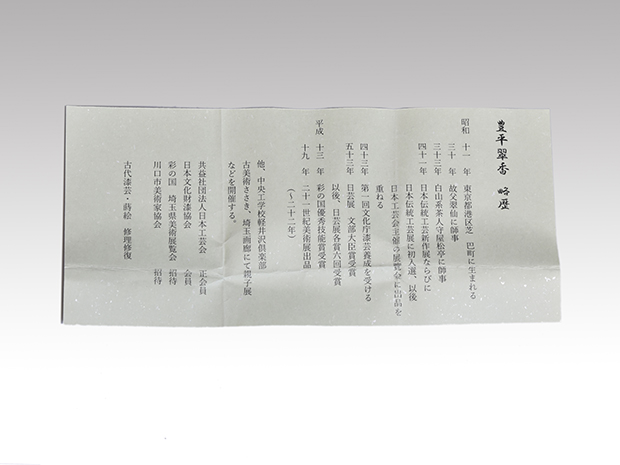 豊平翠香 略歴
昭和 十一 年 東京都港区芝 巴町に生まれる
三十 年 故父翠仙に師事
三十三年 白山系茶人守屋松亭に師事
四十一年 日本伝統工芸新作展ならびに
日本伝統工芸展に初入選、以後
日本工芸会主催の展覧会に出品を
重ねる
四十三年 第一回文化庁漆芸養成を受ける
五十三年 日芸展 文部大臣賞受賞
以後、日芸展各賞六回受賞
平成 十三 年 彩の国優秀技能賞受賞
十九 年 二十一世紀美術展出品
(~二十二年)
他、中央工学校軽井沢倶楽部
古美術ささき、埼玉画廊にて親子展
などを開催する。
共益社団法人日本工芸会 正会員
日本文化財漆協会 会員
彩の国 埼玉県美術展覧会 招待
川口市美術家協会 招待
古代漆芸・蒔絵 修理修復